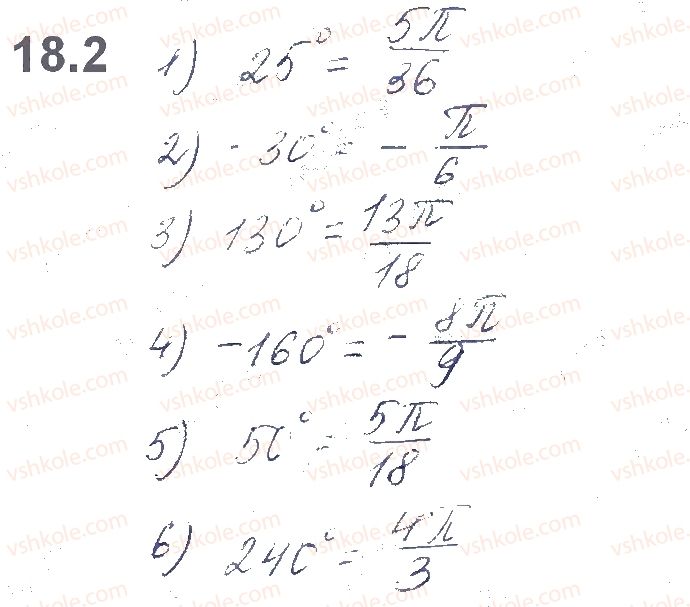 18.2
1) 25° = 5π/36
2) -30° = - π/6
3) 130° = 13π/18
4) -160° = - 8π/9
5) 50° = 5π/18
6) 240° = 4π/3
vshkole.com